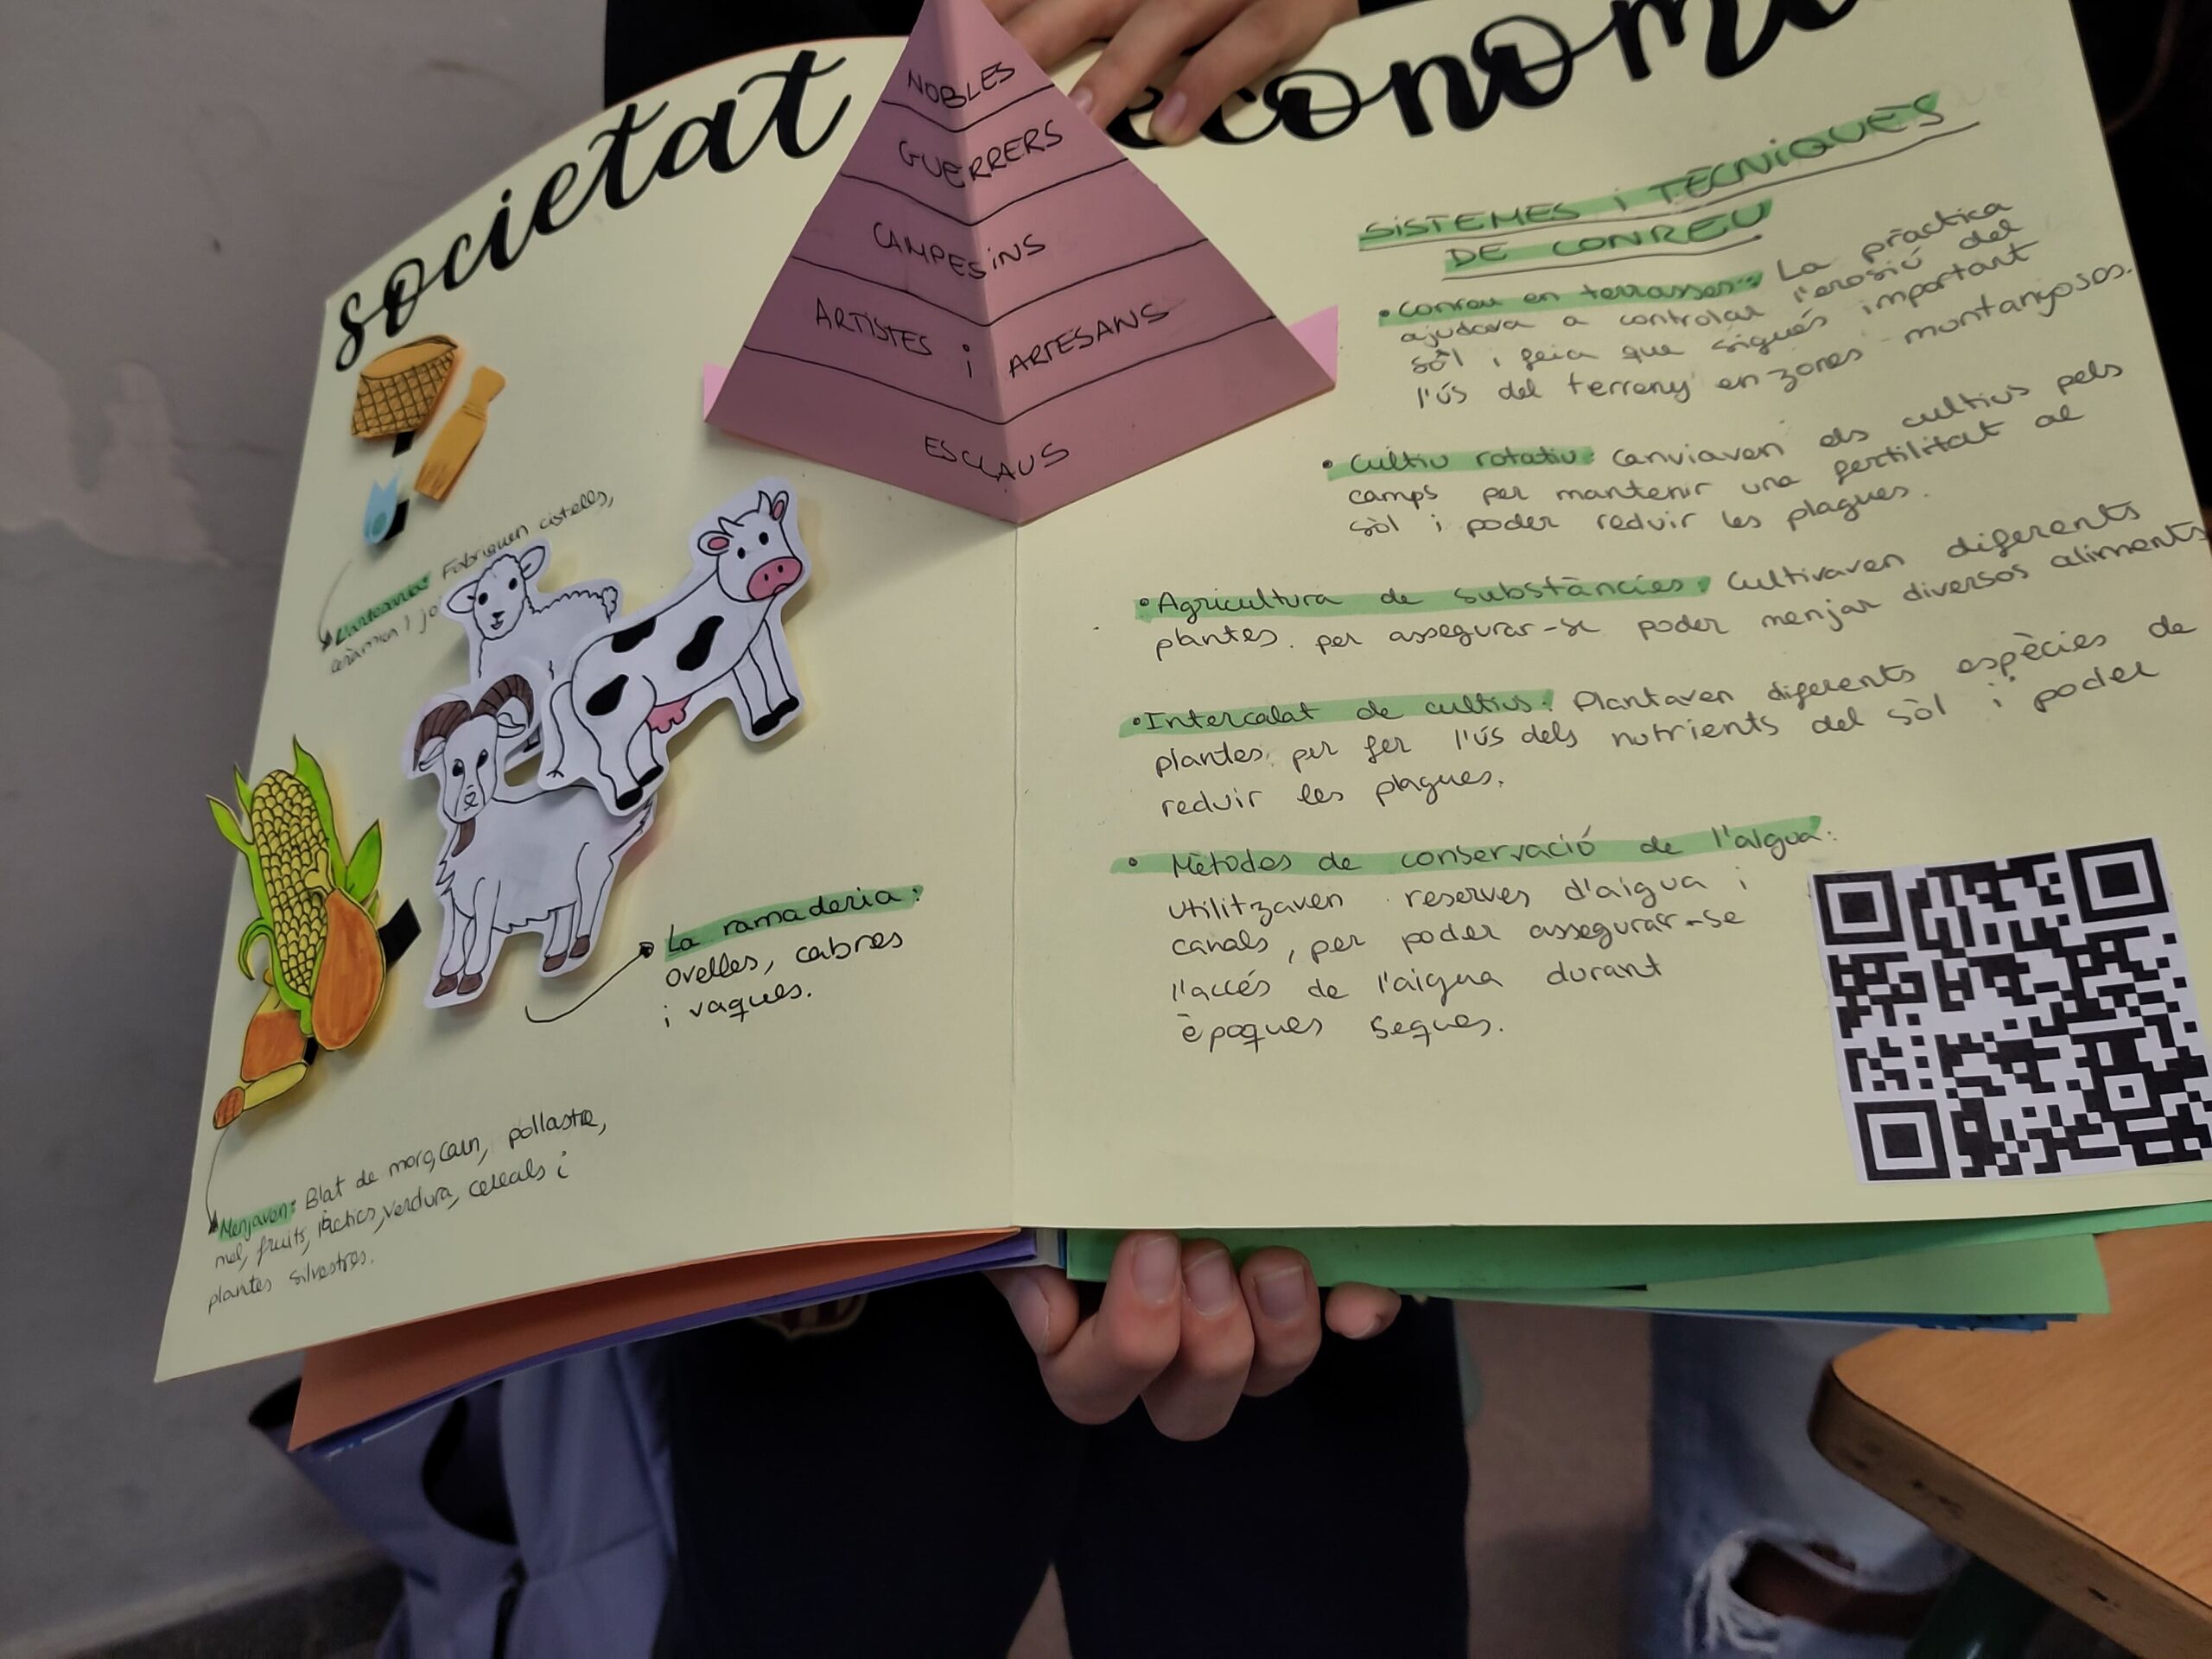 societat
NOBLES
GUERRERS
CAMPESINS
ARTISTES i ARTESANS
ESCLAUS
Fabriquen cistells,
La ramaderia:
ovelles, cabres
i vaques.
Menjaven: Blat de moro, carn, pollastre,
mel, fruits, làctics, verdura, cereals i
plantes silvestres.
econom
SISTEMES i TÈCNIQUES
DE CONREU
• Conreu en terrasses: La pràctica
ajudava a controlar l'erosió del
sòl i feia que sigués important
l'ús del terreny en zones montanyosos.
• Cultiu rotatiu: Canviaven els cultius pels
camps per mantenir una fertilitat al
sòl i poder reduir les plagues.
• Agricultura de substàncies: Cultivaven diferents
plantes. per assegurar-se poder menjar diversos aliments
• Intercalat de cultius: Plantaven diferents espècies de
plantes. per fer l'ús dels nutrients del sòl i poder
reduir les plagues.
• Mètodes de conservació de l'aigua:
utilitzaven reserves d'aigua i
canals, per poder assegurar-se
l'accés de l'aigua durant
èpoques seques.